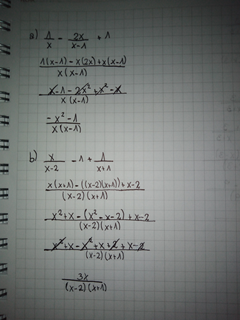 a) 1/x - 2x/(x-1) + 1
(1(x-1) - x(2x) + x(x-1))/(x(x-1))
(x - 1 - 2x² + x² - x)/(x(x-1))
(-x² - 1)/(x(x-1))
b) x/(x-2) - 1 + 1/(x+1)
(x(x+1) - ((x-2)(x+1)) + x-2)/((x-2)(x+1))
(x² + x - (x² - x - 2) + x - 2)/((x-2)(x+1))
(x² + x - x² + x + 2 + x - 2)/((x-2)(x+1))
3x/((x-2)(x+1))